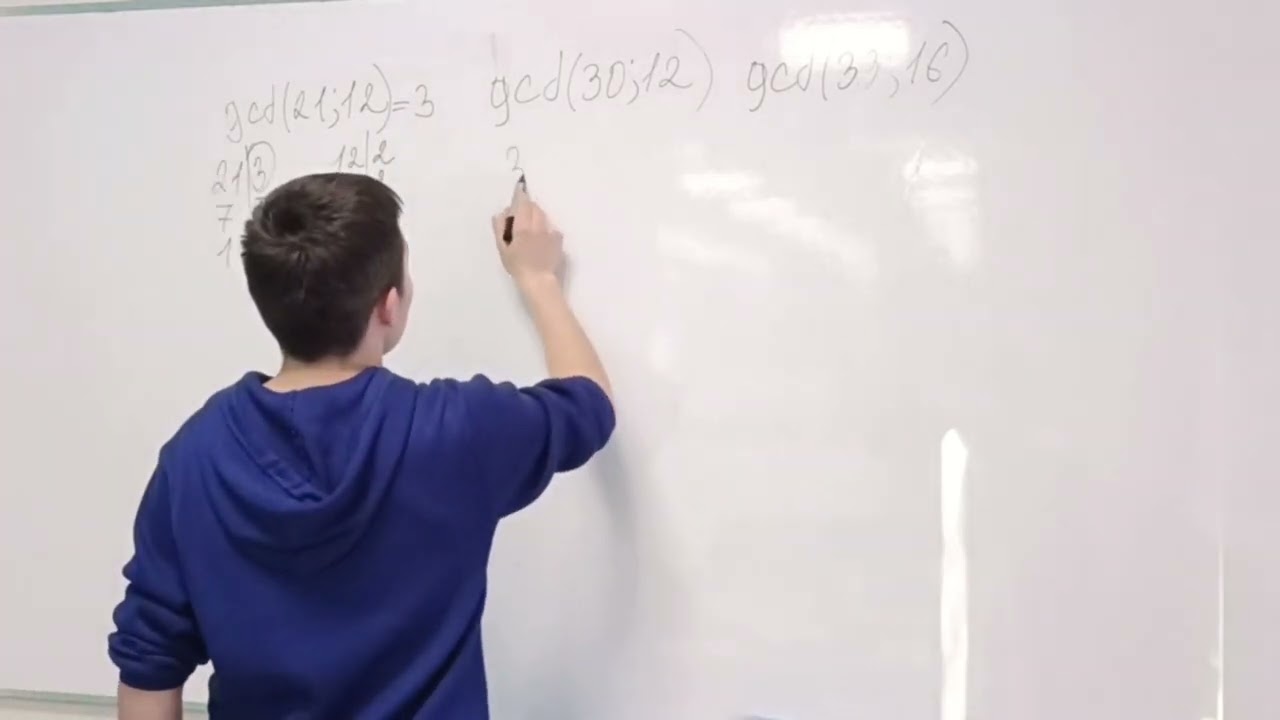 gcd(21;12)=3 gcd(30;12) gcd(33;16)
21|3 12|2
7
1
3